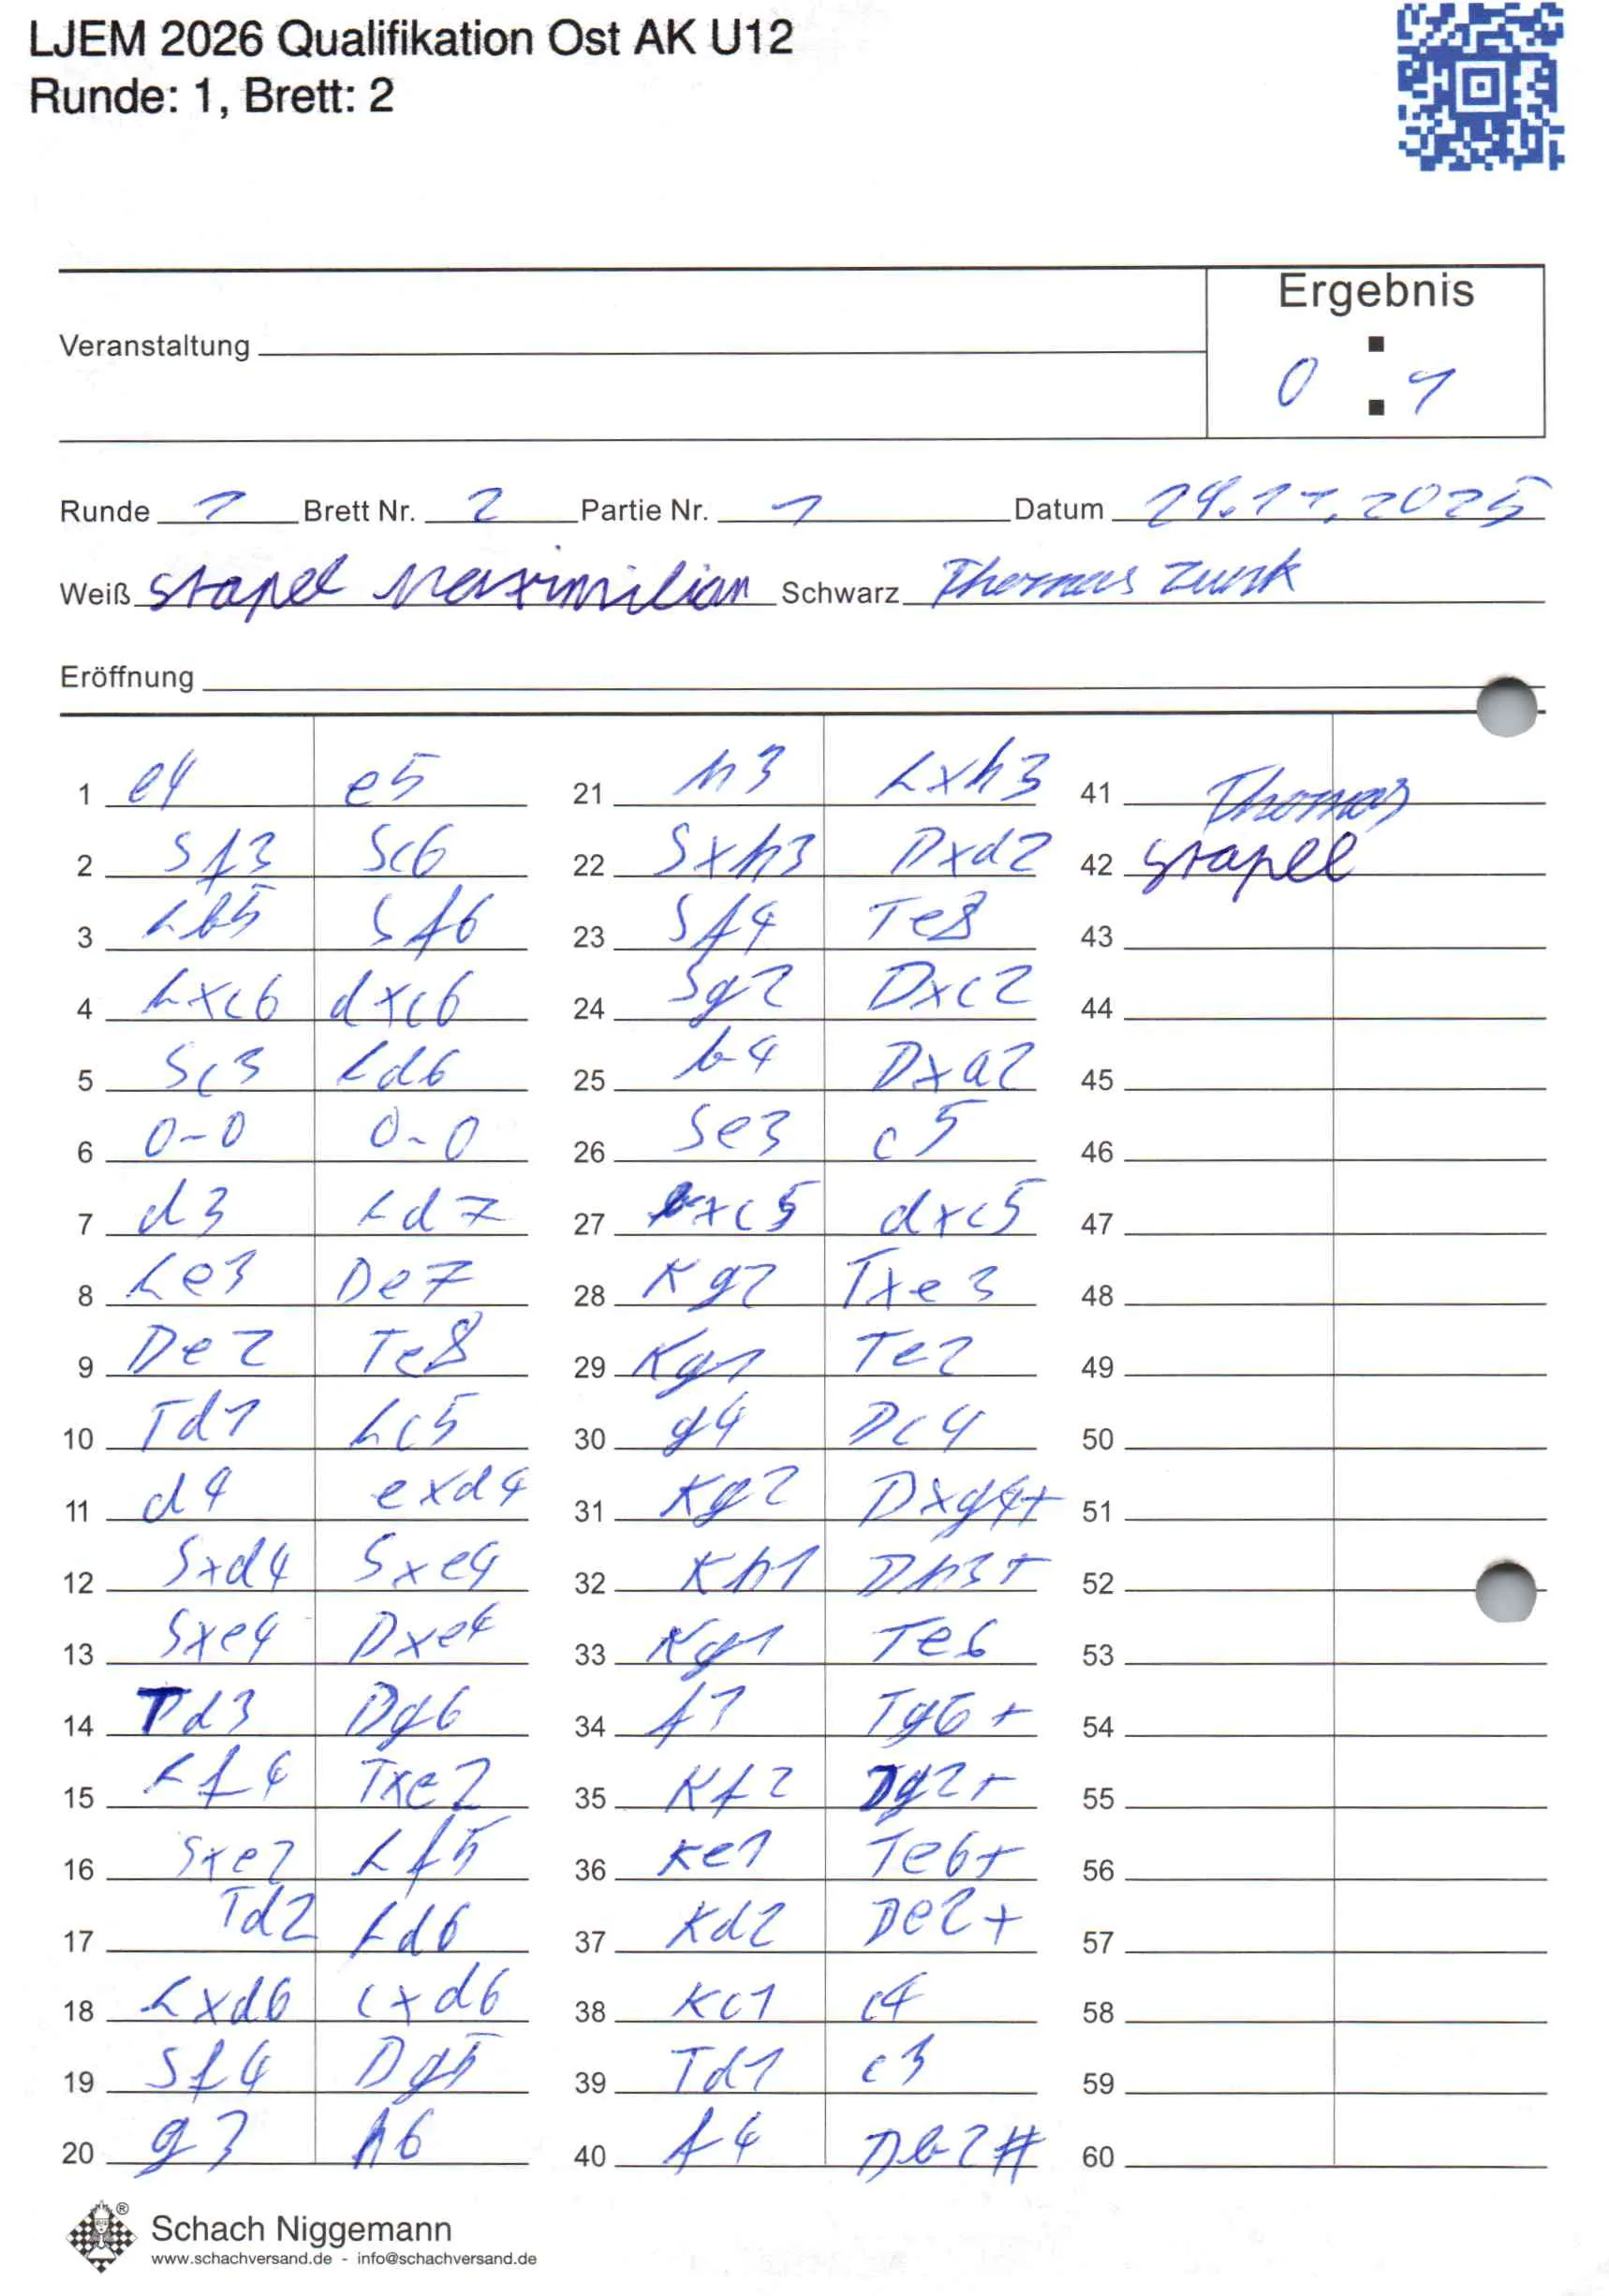 LJEM 2026 Qualifikation Ost AK U12
Runde: 1, Brett: 2
Ergebnis
Veranstaltung
0 : 1
Runde 1 Brett Nr. 2 Partie Nr. 1 Datum 29.11.2025
Weiß Stapel Maximilian Schwarz Thomas Zunk
Eröffnung
1 e4 e5 21 h3 Lxh3 41 Thomas
2 Sf3 Sc6 22 Sxh3 Dxd2 42 Stapel
3 Lb5 Sf6 23 Sf4 Te8 43
4 Lxc6 dxc6 24 Sg2 Dxc2 44
5 Sc3 Ld6 25 b4 Dxa2 45
6 0-0 0-0 26 Se3 c5 46
7 d3 Ld7 27 bxc5 dxc5 47
8 Le3 De7 28 Kg2 Txe3 48
9 De2 Te8 29 Kg1 Te2 49
10 Td1 Lc5 30 g4 Dc4 50
11 d4 exd4 31 Kg2 Dxg4+ 51
12 Sxd4 Sxe4 32 Kh1 Dh3+ 52
13 Sxe4 Dxe4 33 Kg1 Te6 53
14 Td3 Dg6 34 f3 Tg6+ 54
15 Lf4 Txe2 35 Kf2 Dg2+ 55
16 Sxe2 Lf5 36 Ke1 Te6+ 56
17 Td2 Ld6 37 Kd2 De2+ 57
18 Lxd6 cxd6 38 Kc1 c4 58
19 Sf4 Dg5 39 Td1 c3 59
20 g3 h6 40 f4 Db2# 60
Schach Niggemann ®
www.schachversand.de - info@schachversand.de